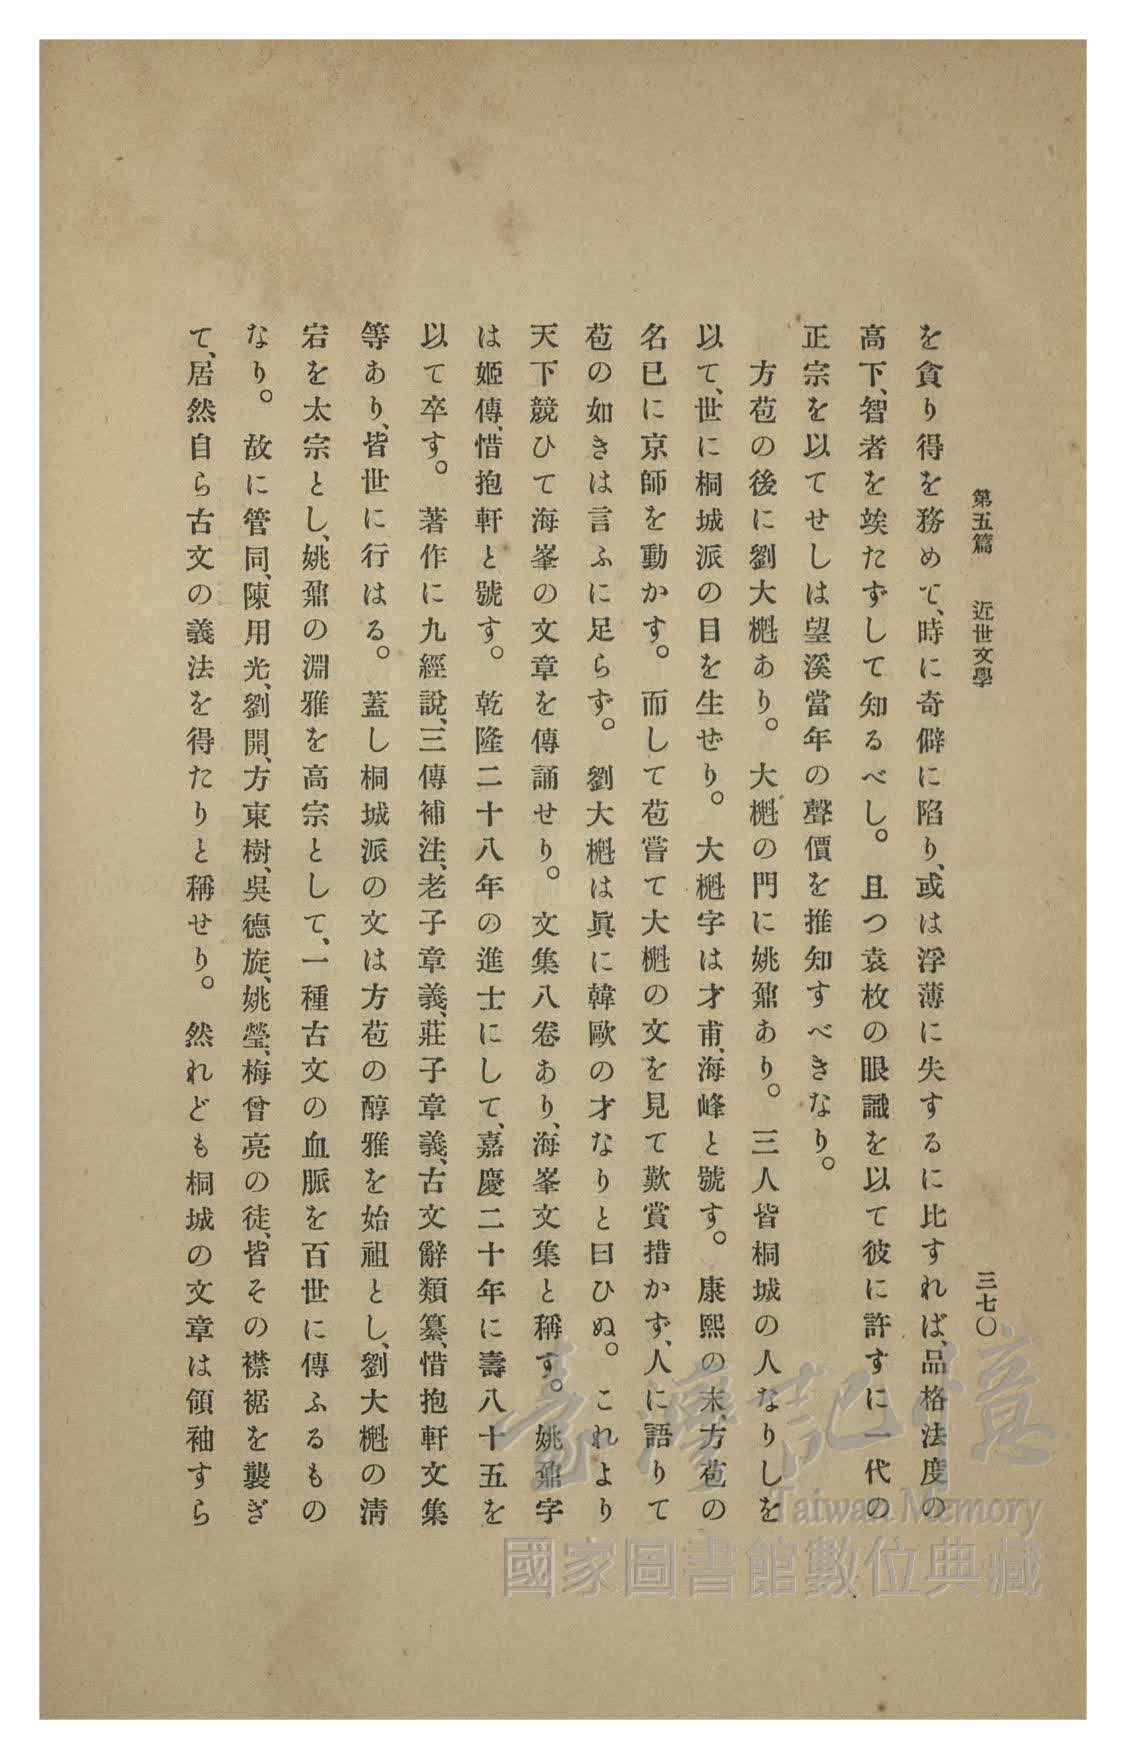 第五篇 近世文學
三七〇
を貪り得を務めて、時に奇僻に陷り、或は浮薄に失するに比すれば、品格法度の
高下、智者を竢たずして知るべし。且つ袁枚の眼識を以て彼に許すに一代の
正宗を以てせしは望溪當年の聲價を推知すべきなり。
方苞の後に劉大櫆あり。大櫆の門に姚鼐あり。三人皆桐城の人なりしを
以て、世に桐城派の目を生ぜり。大櫆字は才甫、海峰と號す。康熙の末、方苞の
名已に京師を動かす。而して苞嘗て大櫆の文を見て歎賞措かず、人に語りて
苞の如きは言ふに足らず。劉大櫆は眞に韓歐の才なりと曰ひぬ。これより
天下競ひて海峯の文章を傳誦せり。文集八卷あり、海峯文集と稱す。姚鼐字
は姬傳、惜抱軒と號す。乾隆二十八年の進士にして、嘉慶二十年に壽八十五を
以て卒す。著作に九經說、三傳補注、老子章義、莊子章義、古文辭類纂、惜抱軒文集
等あり、皆世に行はる。蓋し桐城派の文は方苞の醇雅を始祖とし、劉大櫆の淸
宕を太宗とし、姚鼐の淵雅を高宗として、一種古文の血脈を百世に傳ふるもの
なり。故に管同、陳用光、劉開、方東樹、吳德旋、姚瑩、梅曾亮の徒、皆その襟裾を襲ぎ
て、居然自ら古文の義法を得たりと稱せり。然れども桐城の文章は領袖すら
臺灣記憶
Taiwan Memory
國家圖書館數位典藏